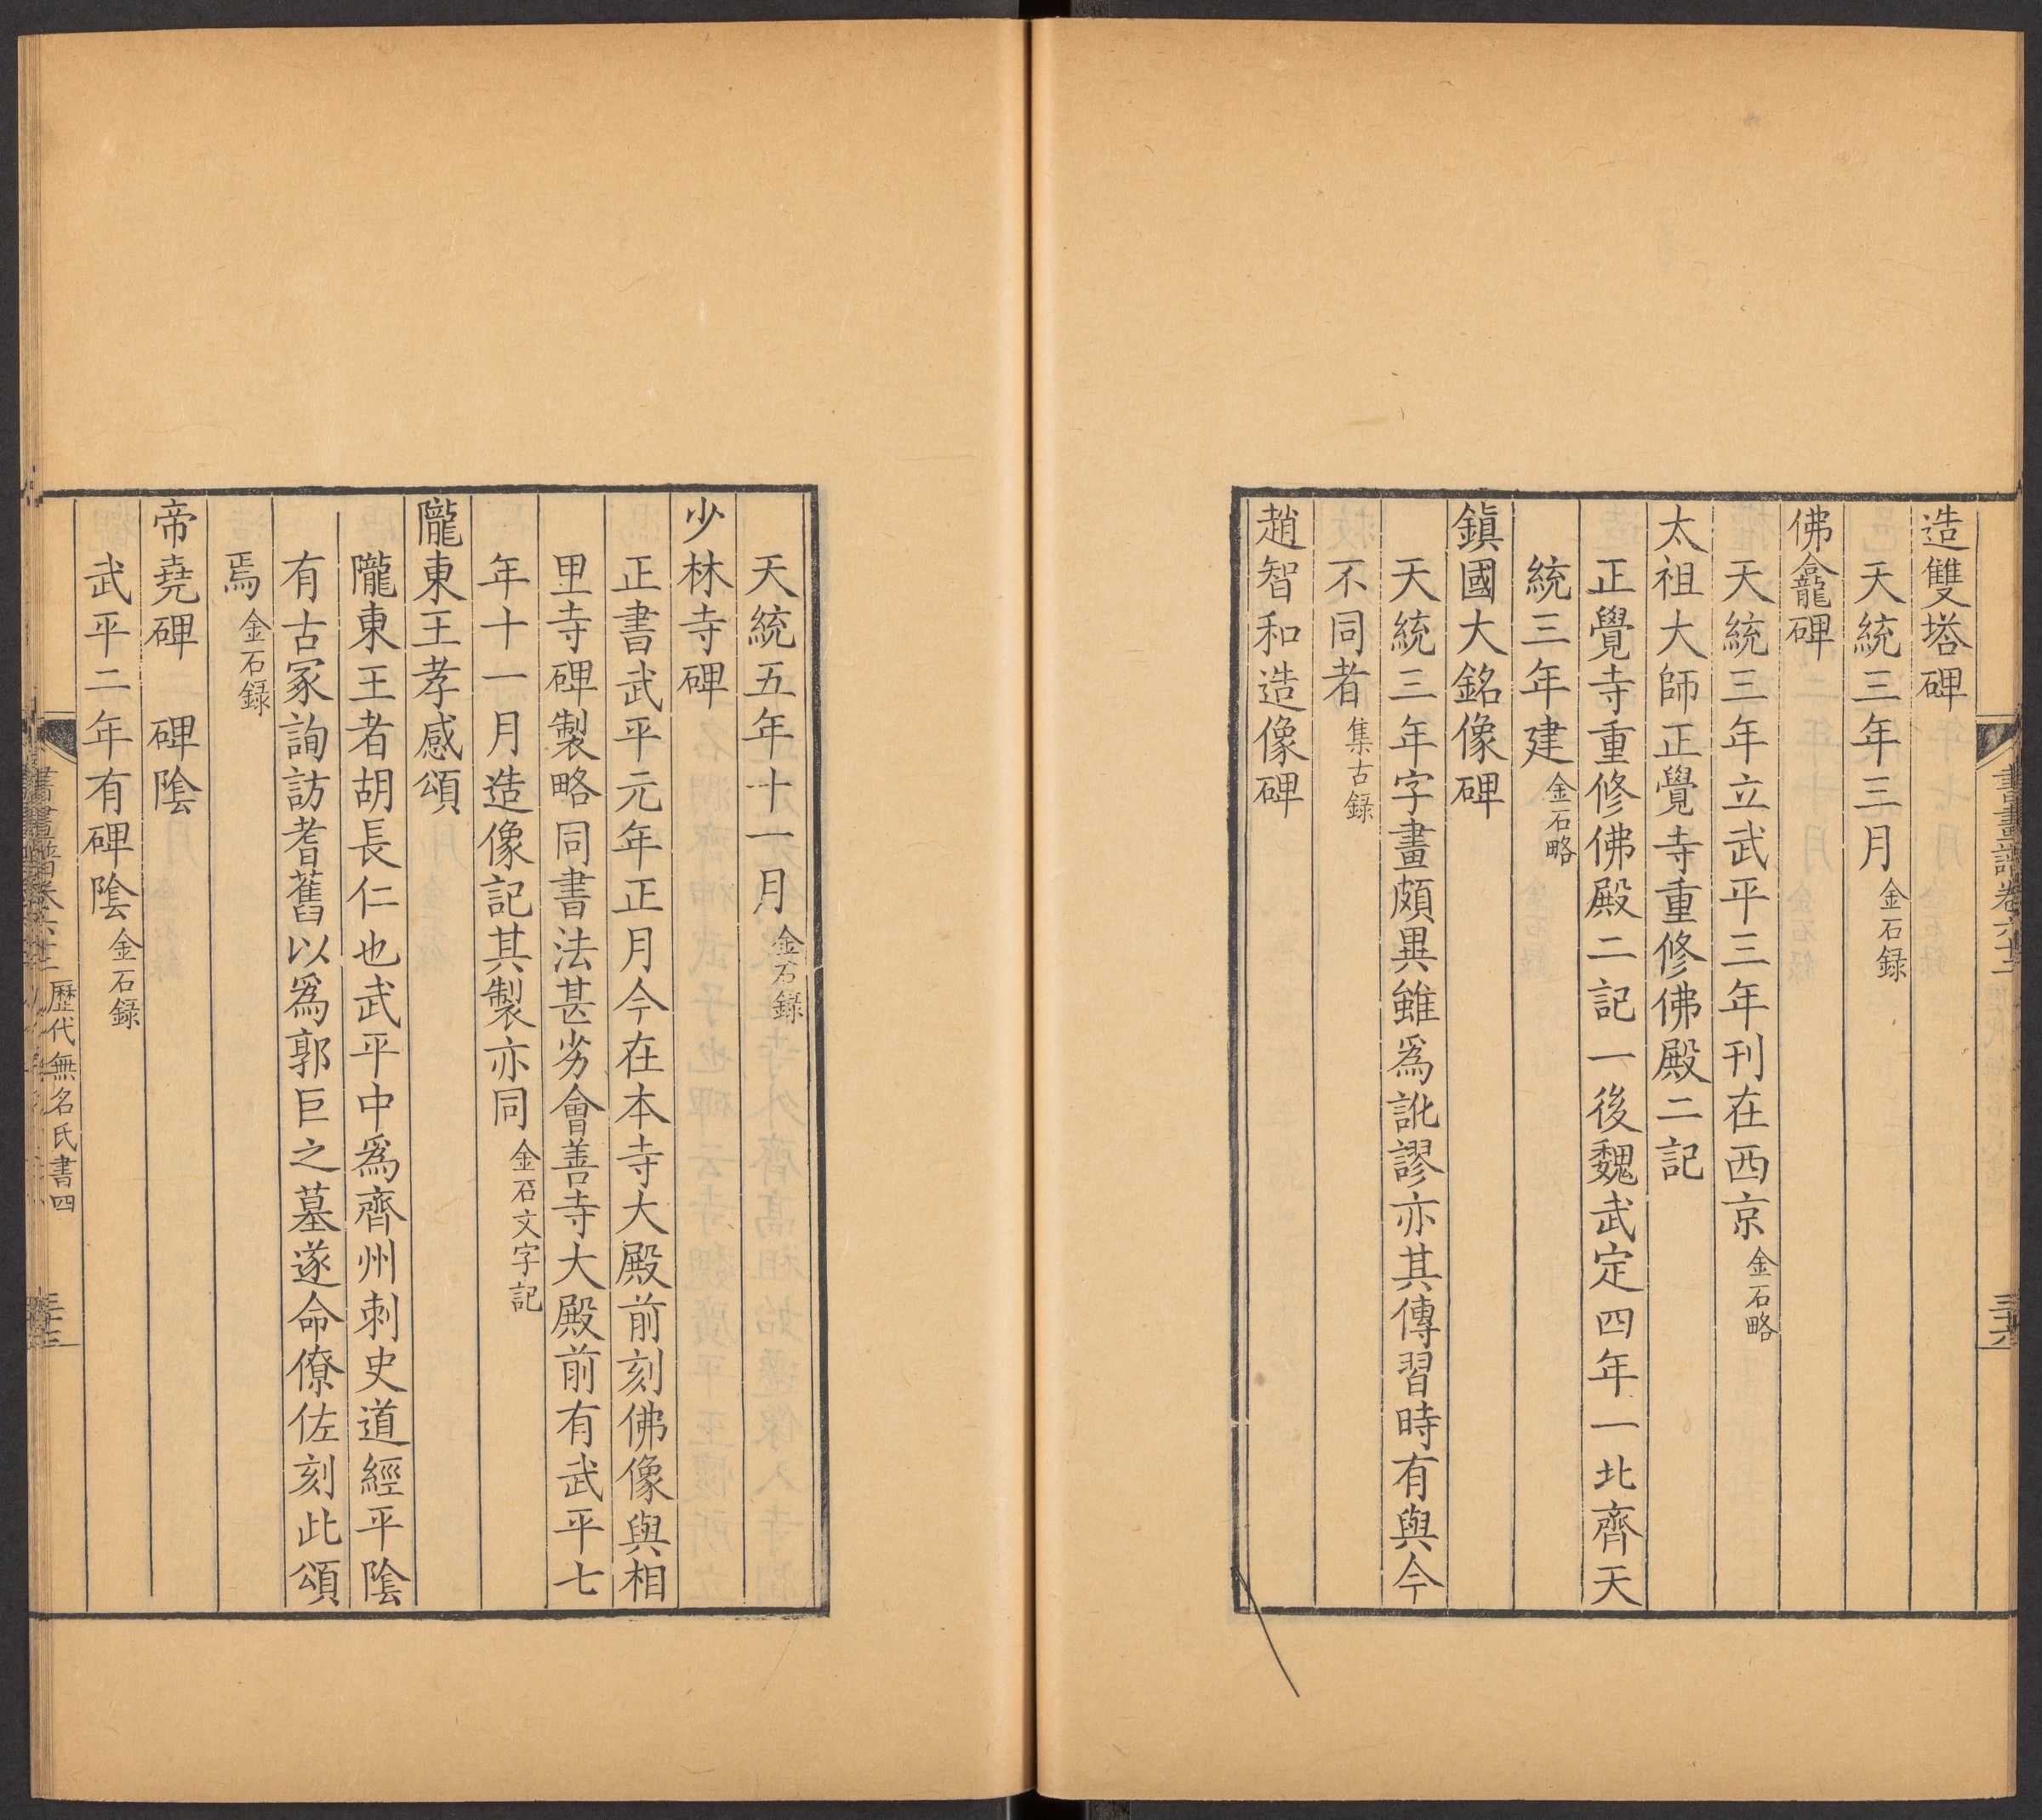 造雙塔碑
天統三年三月金石録
佛龕碑
天統三年立武平三年刊在西京金石略
太祖大師正覺寺重修佛殿二記
正覺寺重修佛殿二記一後魏武定四年一北齊天
統三年建金石略
鎮國大銘像碑
天統三年字畫頗異雖爲訛謬亦其傳習時有與今
不同者集古録
趙智和造像碑
天統五年十一月金石録
少林寺碑
正書武平元年正月今在本寺大殿前刻佛像與相
里寺碑製略同書法甚劣會善寺大殿前有武平七
年十一月造像記其製亦同金石文字記
隴東王孝感頌
隴東王者胡長仁也武平中爲齊州刺史道經平陰
有古冢詢訪耆舊以爲郭巨之墓遂命僚佐刻此頌
焉金石録
帝堯碑 碑陰
武平二年有碑陰金石録
歷代無名氏書四